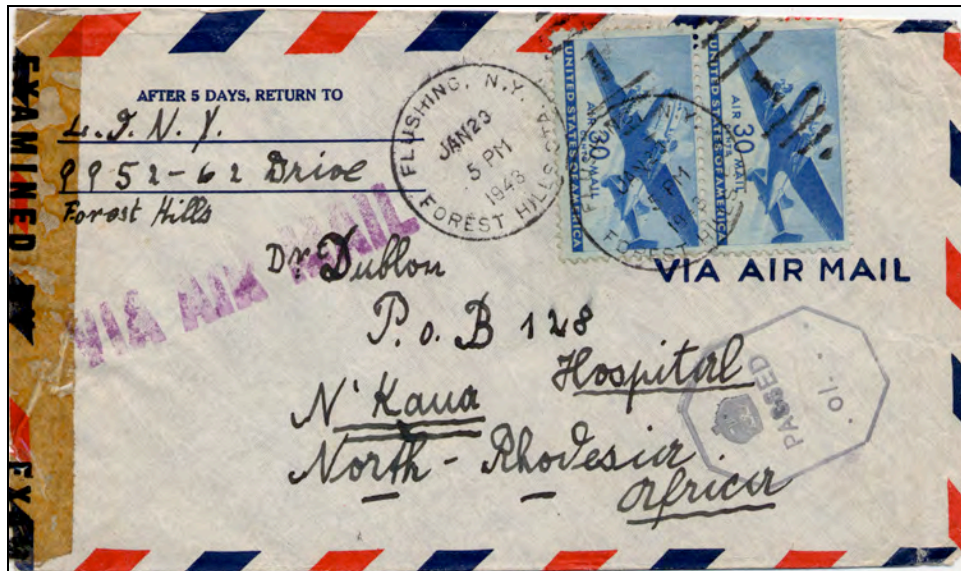 EXAMINED
EX
AFTER 5 DAYS, RETURN TO
L. I. N. Y.
9952-62 Drive
Forest Hills
VIA AIR MAIL
FLUSHING, N.Y.
JAN 23
5 PM
1943
FOREST HILLS STA.
UNITED STATES OF AMERICA
AIR MAIL
30
CENTS
UNITED STATES OF AMERICA
AIR MAIL
30
CENTS
N.Y.
JAN 23
5 PM
1943
FOREST HILLS
VIA AIR MAIL
Dr. Dublon
P. o. B 128
Hospital
N'Kana
North - Rhodesia
Africa
PASSED
01.